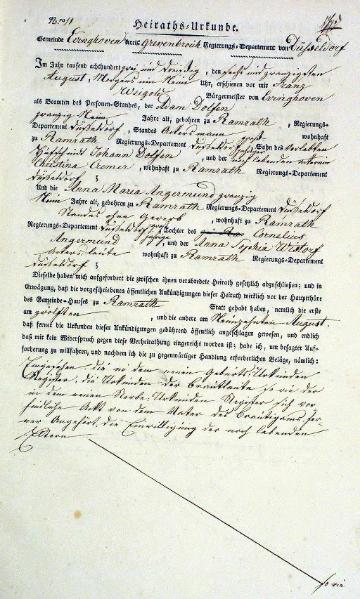 Heiraths-Urkunde.
Gemeinde Evinghoven Kreis Grevenbroich Regierungs-Departement von Düsseldorf
Im Jahr tausend achthundert zwei und dreißig, den sechs und zwanzigsten
August, Morgens um Uhr, erschienen vor mir Franz
Weigold Bürgermeister von Evinghoven
als Beamten des Personen-Standes, der Adam Dolfen
zwanzig Neun Jahre alt, gebohren zu Ramrath, Regierungs-
Departement Düsseldorf, Standes Ackersmann wohnhaft
zu Ramrath Regierungs-Departement Düsseldorf Sohn des verlebten
Johann Dolfen und der noch lebenden
Christina Cremer, wohnhaft zu Ramrath Regierungs-Departement
Düsseldorf
Und die Anna Maria Angermund zwanzig
Neun Jahre alt, gebohren zu Ramrath Regierungs-Departement Düsseldorf
Standes ohne Gewerb, wohnhaft zu Ramrath
Regierungs-Departement Düsseldorf Tochter des Cornelius
Angermund und der Anna Sophia
Ackersleute wohnhaft zu Ramrath, Regierungs-Departement
Düsseldorf
Dieselbe haben mich aufgefordert die zwischen ihnen verabredete Heirath gesetzlich abzuschließen; und in
Erwägung, daß die vorgeschriebenen öffentlichen Ankündigungen dieser Heirath wirklich vor der Hauptthüre
des Gemeinde-Hauses zu Ramrath Statt gehabt haben, nemlich die erste
am zwölften, und die andere am Neunzehnten August,
daß ferner die Urkunden dieser Ankündigungen gebührend öffentlich angeschlagen gewesen, und endlich
daß mir kein Widerspruch gegen diese Verheirathung eingereicht worden ist; habe ich, um besagter Auf-
forderung zu willfahren, und nachdem ich die zu gegenwärtiger Handlung erforderlichen Beläge, nämlich:
Register, die Urkunden der Brautleute so wie der
in dem einen Sterbe-Urkunden Register sich vor
findliche Akt von dem Vater des Bräutigams fer
ner Angehört, die Einwilligung der noch lebenden
Eltern
so wie